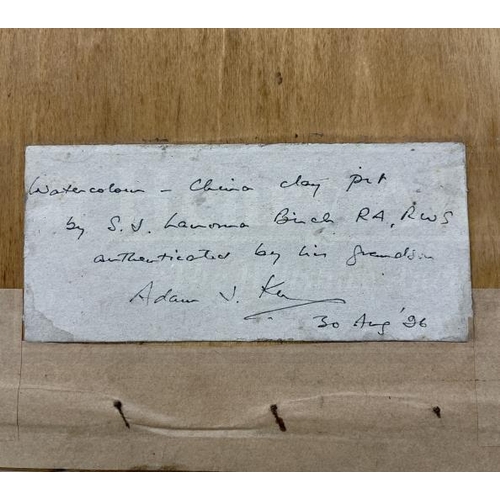 Watercolour – China clay pit
by S. J. Lamorna Birch RA, RWS
authenticated by his grandson
Adam J. Kerr
30 Aug '96